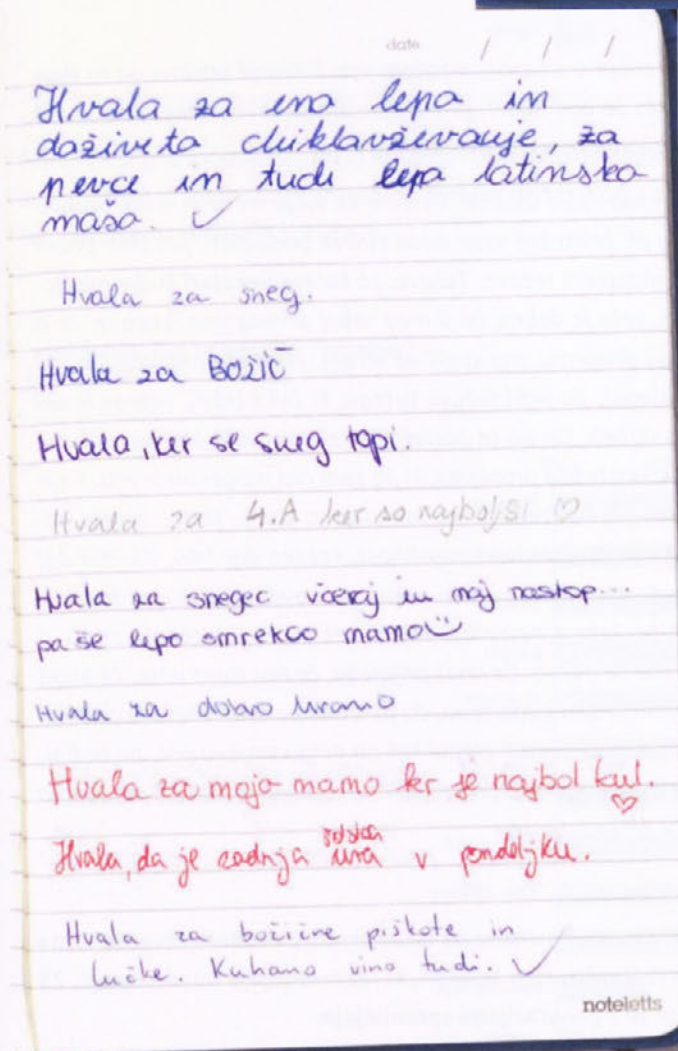 date / / /
Hvala za eno lepo in
doživeto miklavževanje, za
pevce in tudi lepa latinska
maša. ✓
Hvala za sneg.
Hvala za Božič
Hvala, ker se sneg topi.
Hvala za 4.A ker so najboljši ♡
Hvala za snegec včeraj in moj nastop...
pa še lepo smrekco mamo
Hvala za dobro hrano
Hvala za mojo mamo ker je najbol kul.
♡
Hvala, da je zadnja šolska ura v pondeljku.
Hvala za božične piškote in
lučke. Kuhano vino tudi. ✓
noteletts